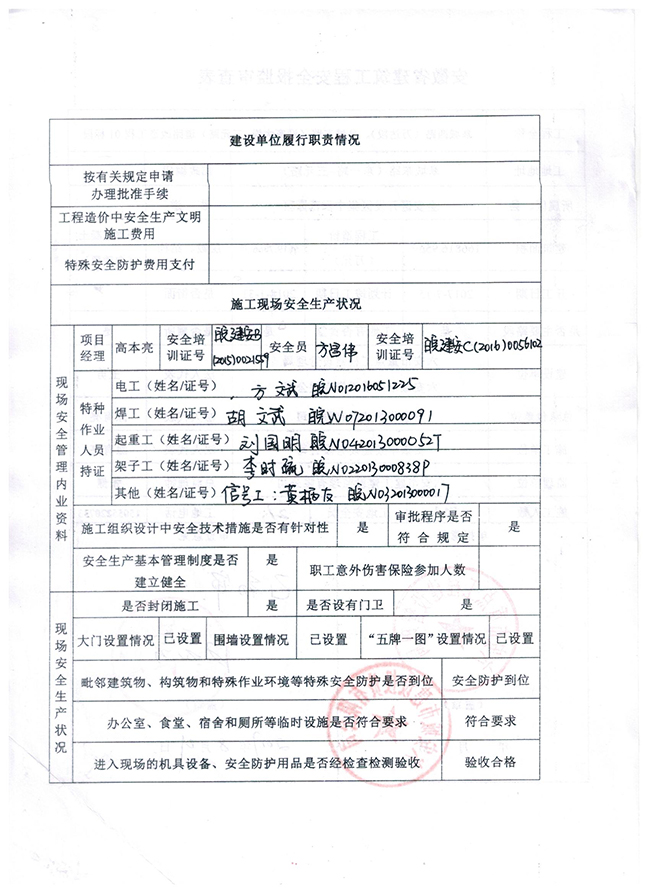 建设单位履行职责情况
按有关规定申请
办理批准手续
工程造价中安全生产文明
施工费用
特殊安全防护费用支付
施工现场安全生产状况
现场安全管理内业资料
项目经理 高本亮 安全培训证号 皖建安B(2015)0021559 安全员 方昌伟 安全培训证号 皖建安C(2016)0056102
特种作业人员持证
电工（姓名/证号） 方文武 皖N012016051225
焊工（姓名/证号） 胡文武 皖N072013000091
起重工（姓名/证号） 刘国明 皖N042013000052T
架子工（姓名/证号） 李时 皖N022013000838P
其他（姓名/证号） 信号工：黄 友 皖N032013000017
施工组织设计中安全技术措施是否有针对性 是 审批程序是否符合规定 是
安全生产基本管理制度是否建立健全 是 职工意外伤害保险参加人数
现场安全生产状况
是否封闭施工 是 是否设有门卫 是
大门设置情况 已设置 围墙设置情况 已设置 “五牌一图”设置情况 已设置
毗邻建筑物、构筑物和特殊作业环境等特殊安全防护是否到位 安全防护到位
办公室、食堂、宿舍和厕所等临时设施是否符合要求 符合要求
进入现场的机具设备、安全防护用品是否经检查检测验收 验收合格